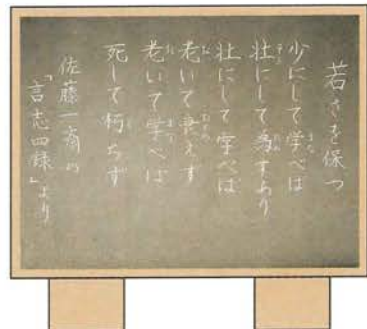 若さを保つ
少にして学べば
壮にして為すあり
壮にして学べば
老いて衰えず
老いて学べば
死して朽ちず
佐藤一斎の
「言志四録」より